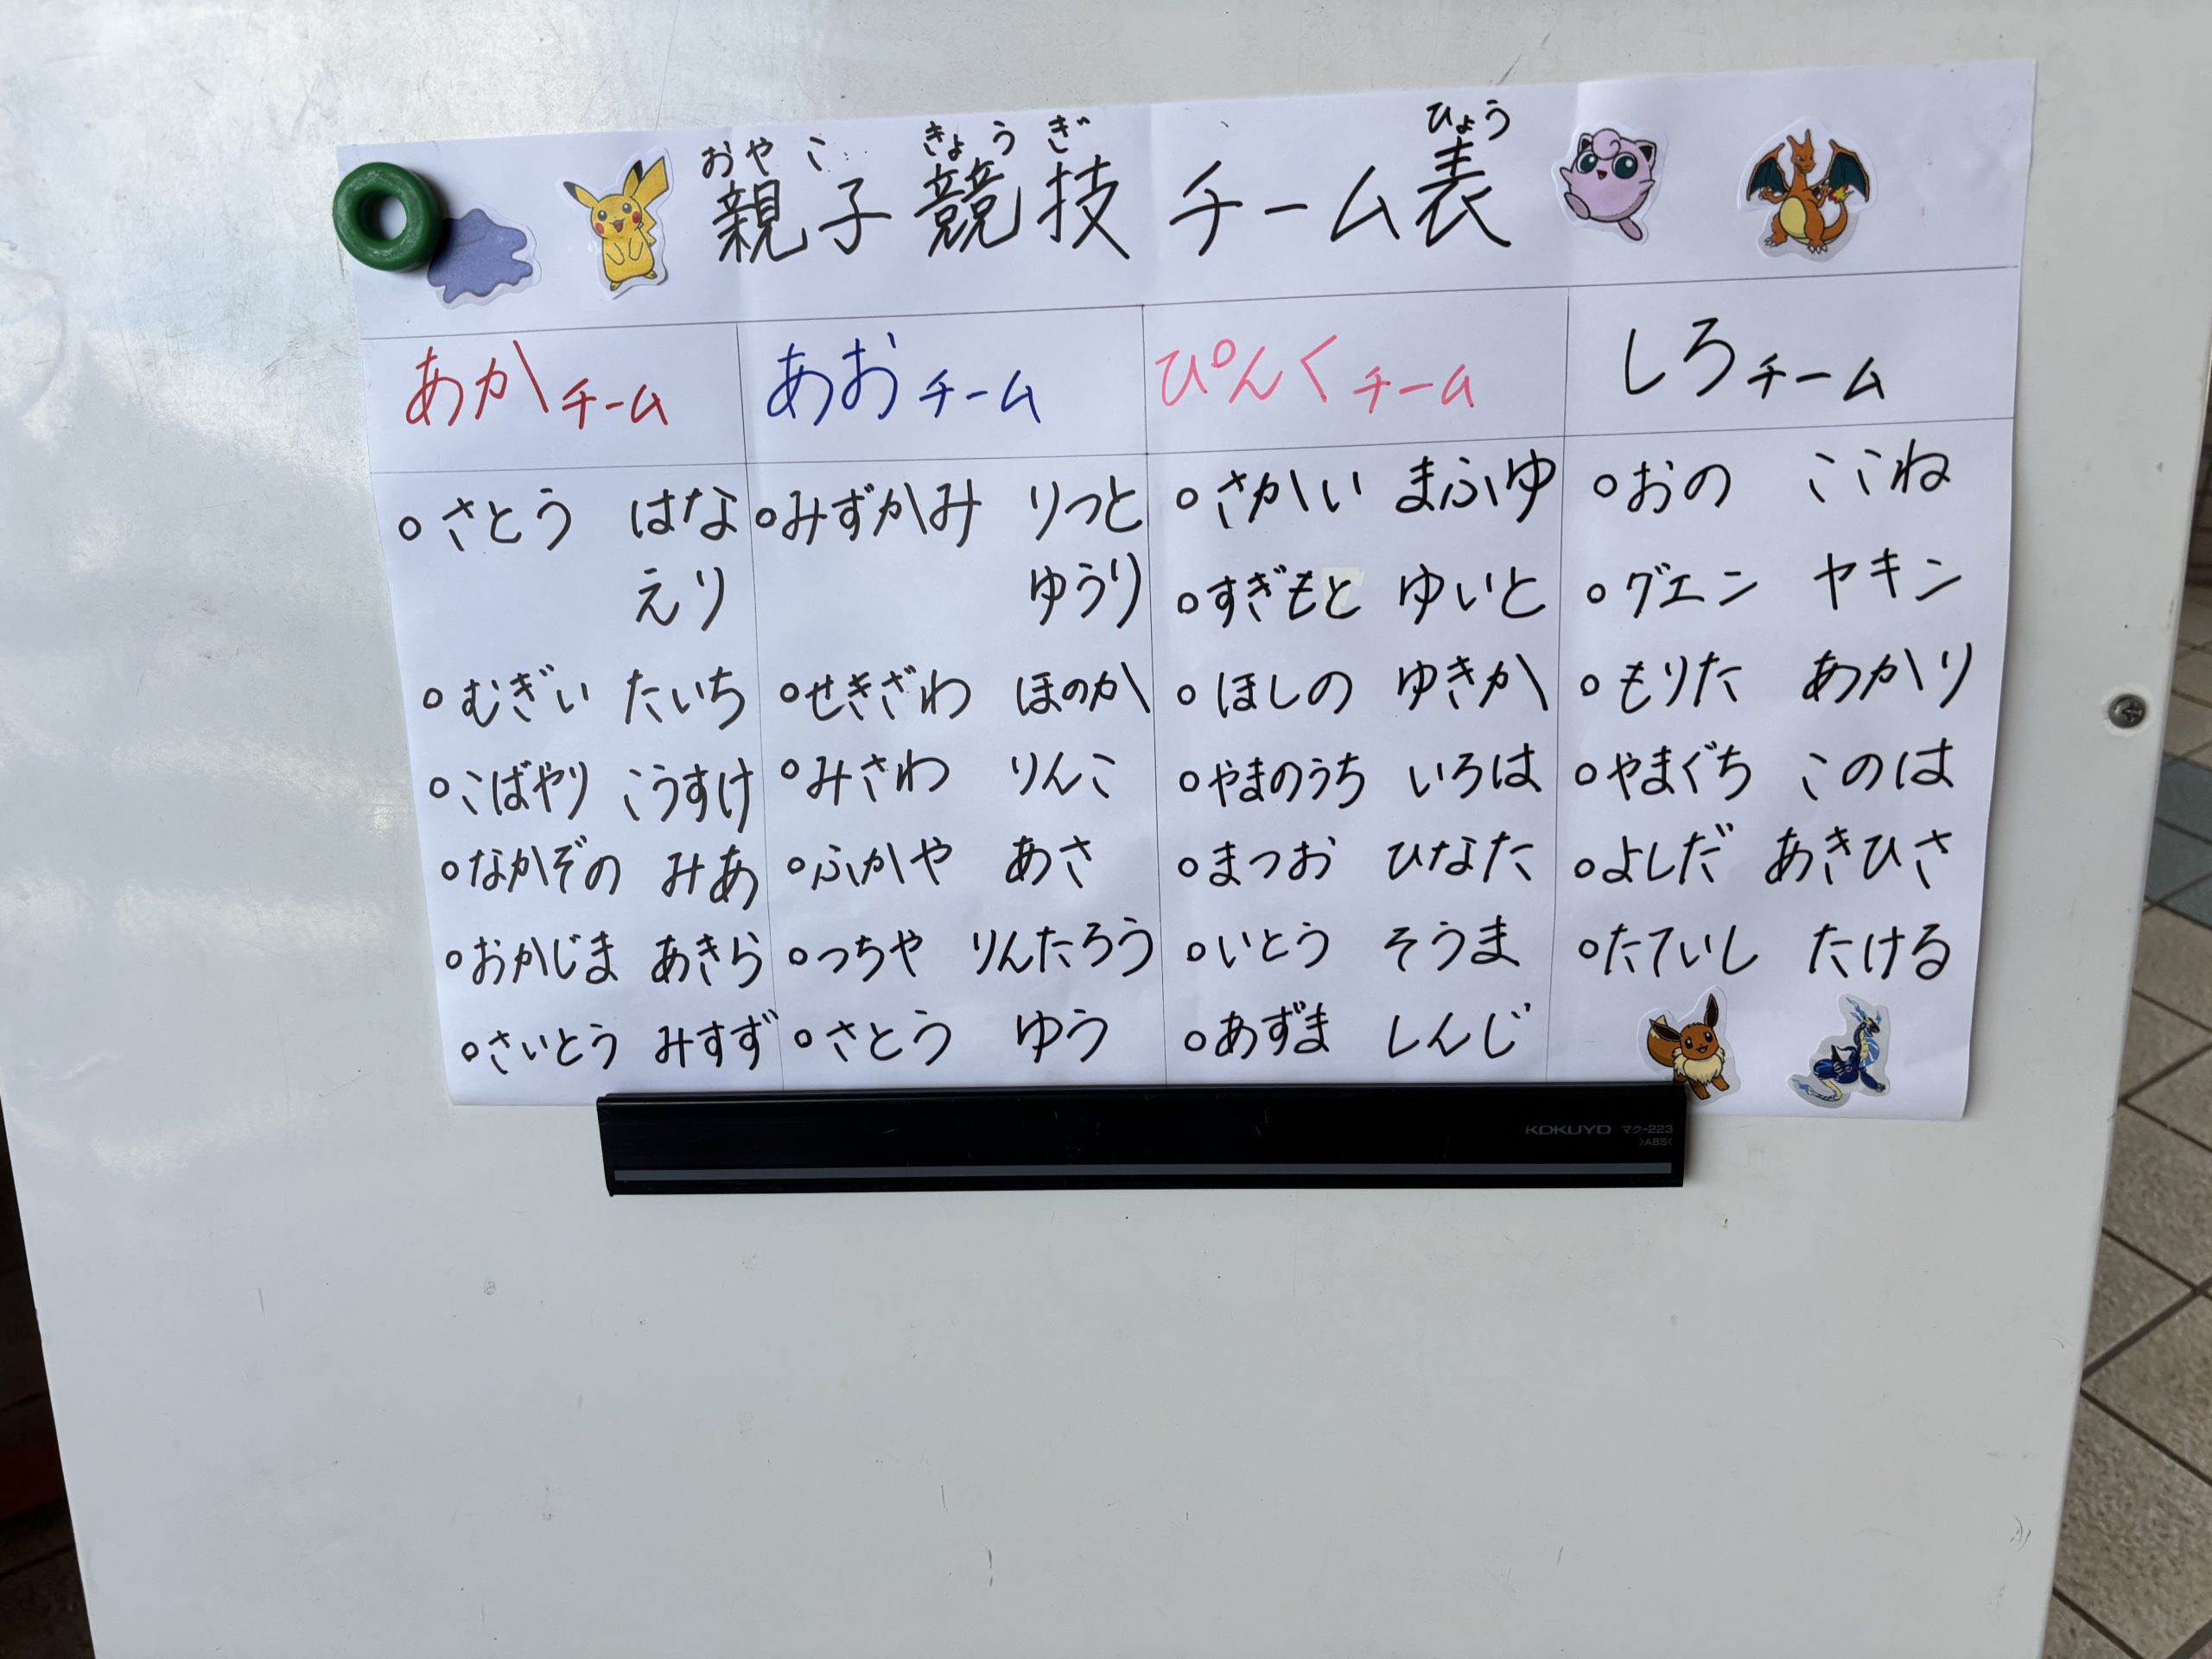 おやこ きょうぎ ひょう
親子競技 チーム表
あかチーム
さとう はな
えり
むぎい たいち
こばやり こうすけ
なかぞの みあ
おかじま あきら
さいとう みすず
あおチーム
みずかみ りっと
ゆうり
せきざわ ほのか
みさわ りんこ
ふかや あさ
つちや りんたろう
さとう ゆう
ぴんくチーム
さかい まふゆ
すぎもと ゆいと
ほしの ゆきか
やまのうち いろは
まつお ひなた
いとう そうま
あずま しんじ
しろチーム
おの ここね
グエン ヤキン
もりた あかり
やまぐち このは
よしだ あきひさ
たていし たける
KOKUYO マク-223
>ABS<